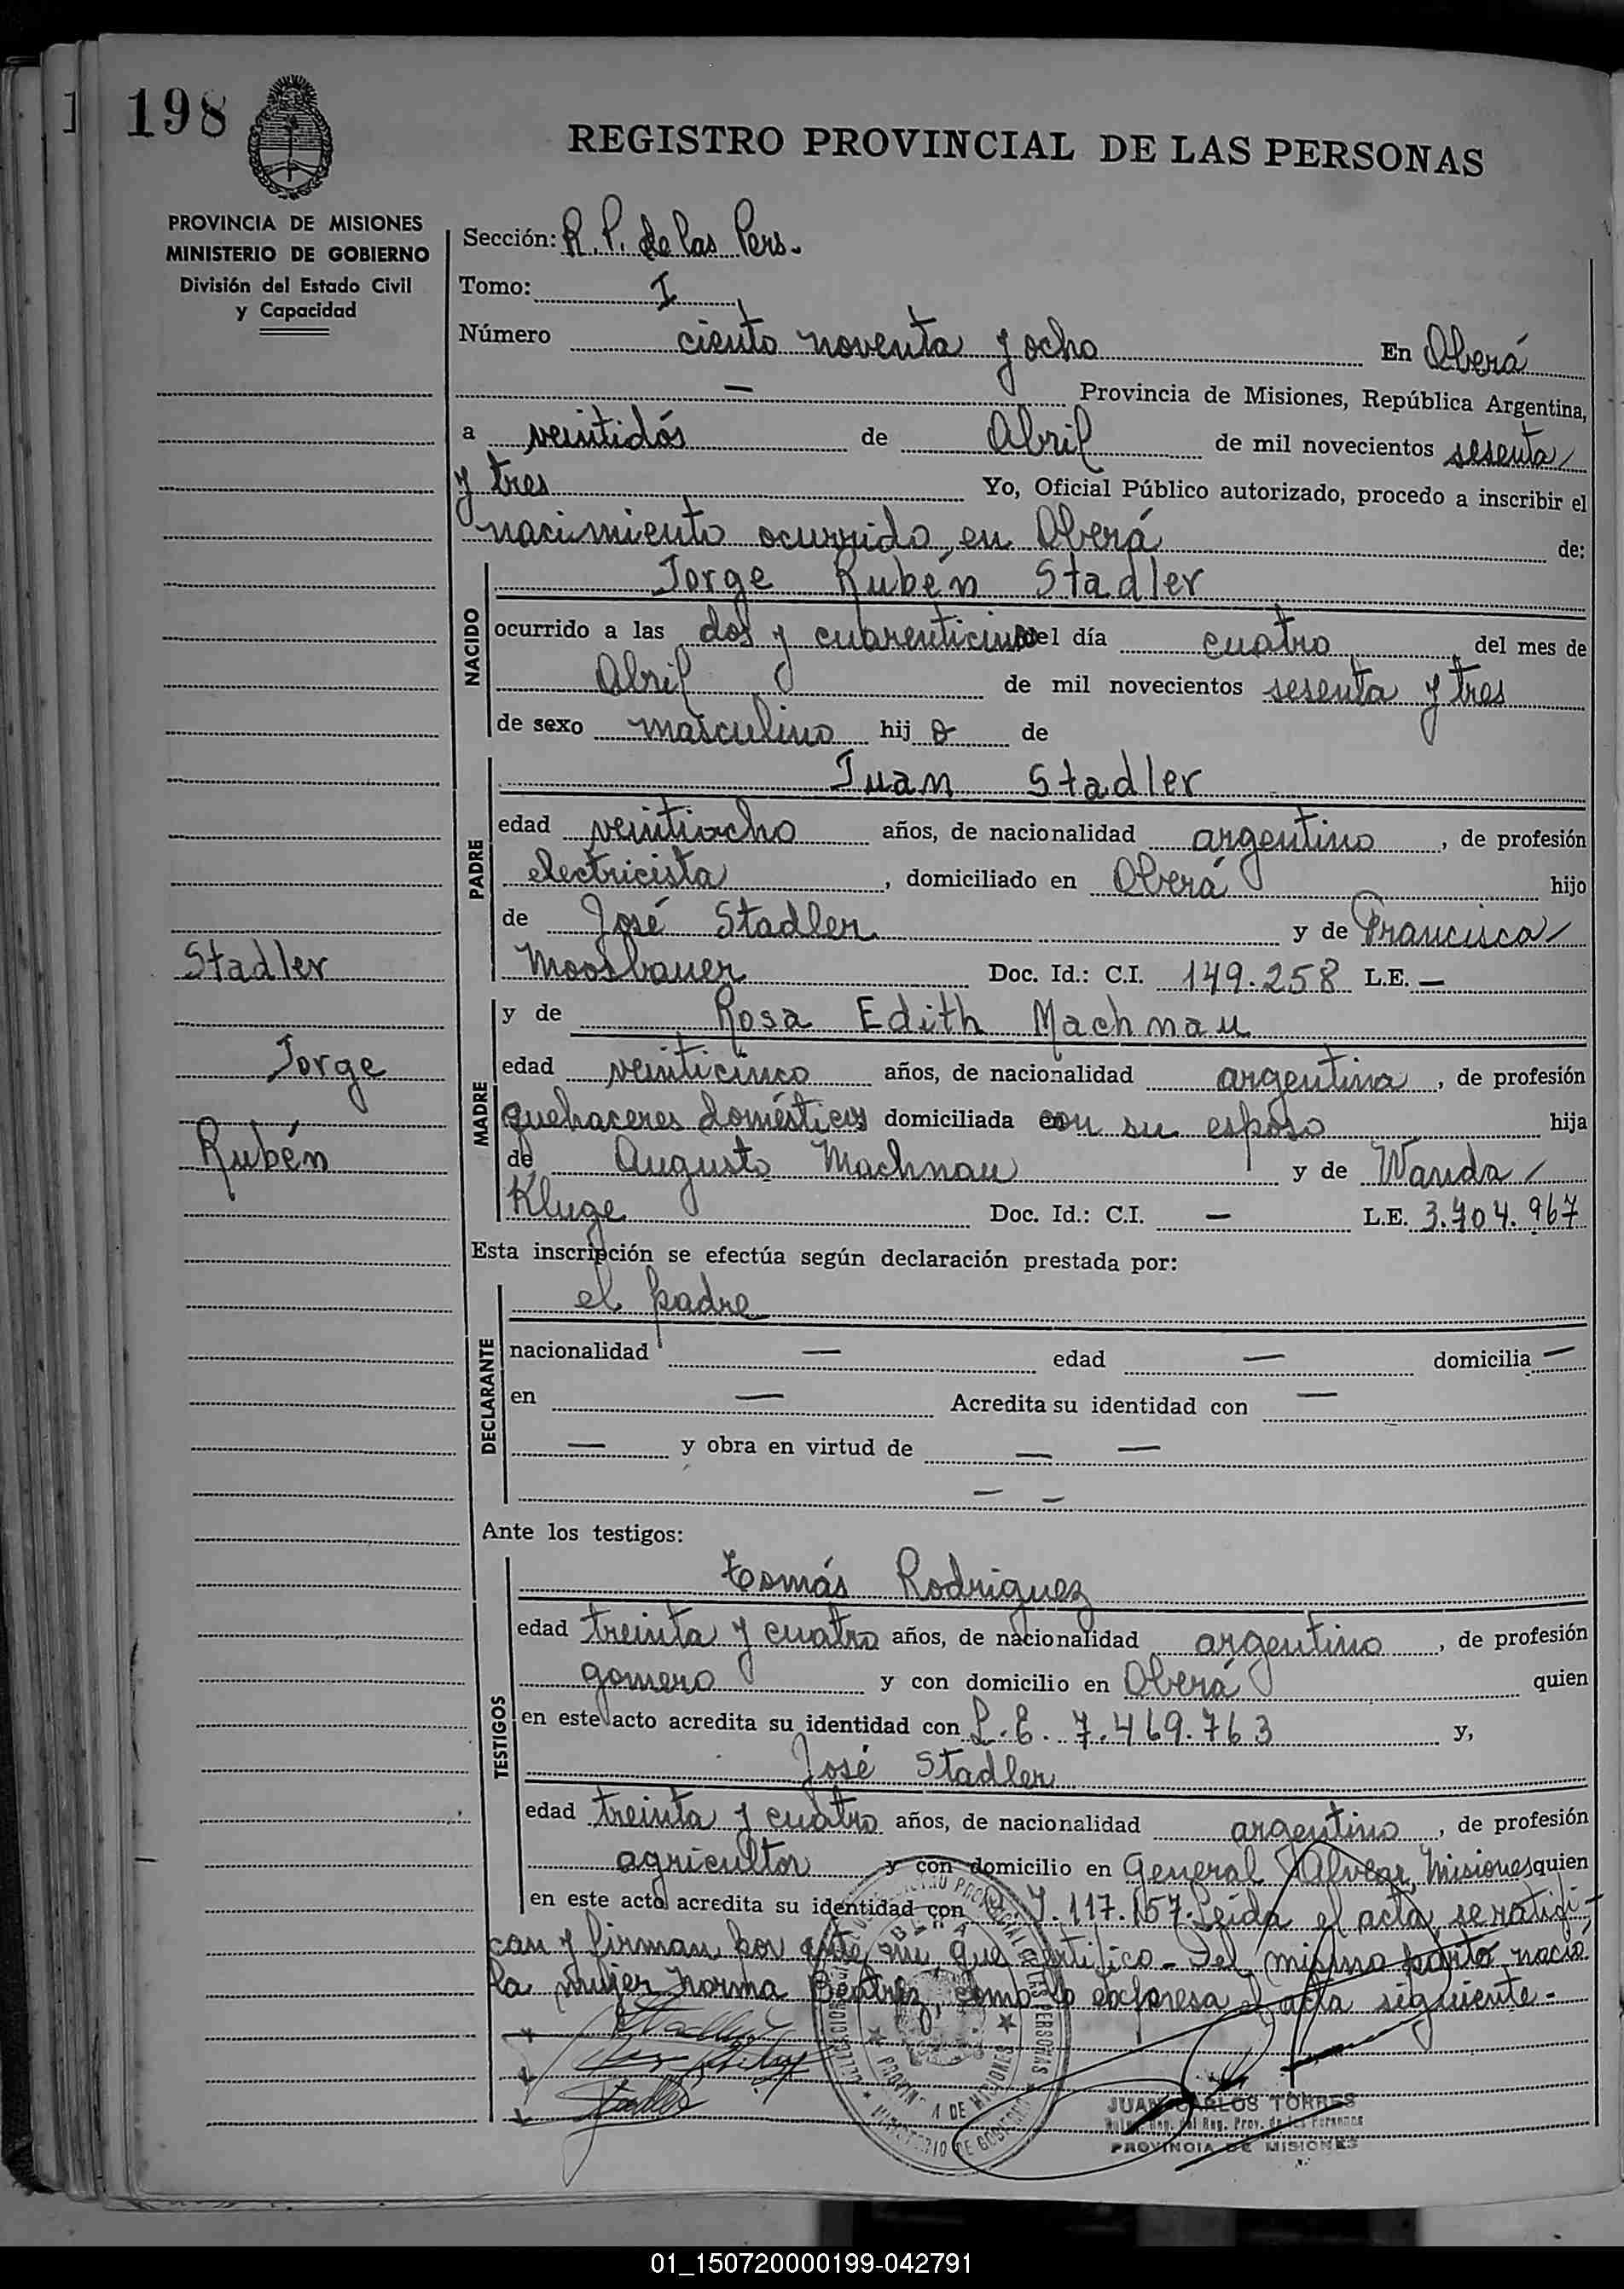 198
REGISTRO PROVINCIAL DE LAS PERSONAS
PROVINCIA DE MISIONES
MINISTERIO DE GOBIERNO
División del Estado Civil
y Capacidad
Sección: R. P. de las Pers.
Tomo: I
Número ciento noventa y ocho En Oberá
— Provincia de Misiones, República Argentina,
a veintidós de Abril de mil novecientos sesenta
y tres Yo, Oficial Público autorizado, procedo a inscribir el
nacimiento ocurrido en Oberá de:
NACIDO
Jorge Rubén Stadler
ocurrido a las dos y cuarenticinco del día cuatro del mes de
Abril de mil novecientos sesenta y tres
de sexo masculino hij o de
PADRE
Juan Stadler
edad veintiocho años, de nacionalidad argentino, de profesión
electricista, domiciliado en Oberá hijo
de José Stadler y de Francisca
Moosbauer Doc. Id.: C.I. 149.258 L.E. —
Stadler
Jorge
Rubén
MADRE
y de Rosa Edith Machnau
edad veinticinco años, de nacionalidad argentina, de profesión
quehaceres domésticos domiciliada con su esposo hija
de Augusto Machnau y de Wanda
Kluge Doc. Id.: C.I. — L.E. 3.404.967
Esta inscripción se efectúa según declaración prestada por:
DECLARANTE
el padre
nacionalidad — edad — domicilia —
en — Acredita su identidad con —
— y obra en virtud de — —
— —
Ante los testigos:
TESTIGOS
Tomás Rodriguez
edad treinta y cuatro años, de nacionalidad argentino, de profesión
gomero y con domicilio en Oberá quien
en este acto acredita su identidad con L.E. 7.469.763 y,
José Stadler
edad treinta y cuatro años, de nacionalidad argentino, de profesión
agricultor y con domicilio en General Alvear, Misiones quien
en este acto acredita su identidad con 7.117.157. Leída el acta, se ratifi-
can y firman por ante mi, que certifico. Del mismo parto nació
la mujer Norma Beatriz, como lo expresa el acta siguiente.
Stadler
JUAN CARLOS TORRES
Reg. Prov. de las Personas
PROVINCIA DE MISIONES
01_150720000199-042791